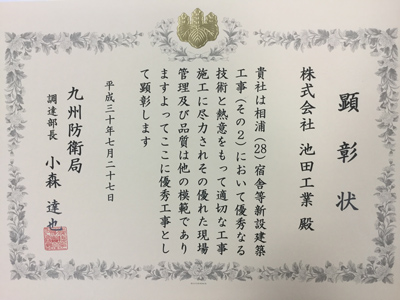 顕彰状
株式会社 池田工業 殿
貴社は相浦(28)宿舎等新設建築
工事(その2)において優秀なる
技術と熱意をもって適切な工事
施工に尽力されその優れた現場
管理及び品質は他の模範であり
ますよってここに優秀工事とし
て顕彰します
平成三十年七月二十七日
九州防衛局
調達部長 小森達也